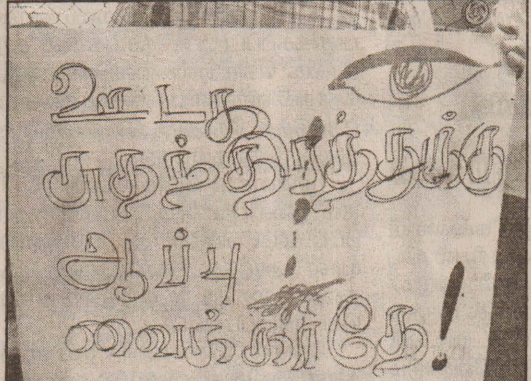 ஊடக
சுதந்திரத்துக்கு
ஆப்பு
வைக்காதே!